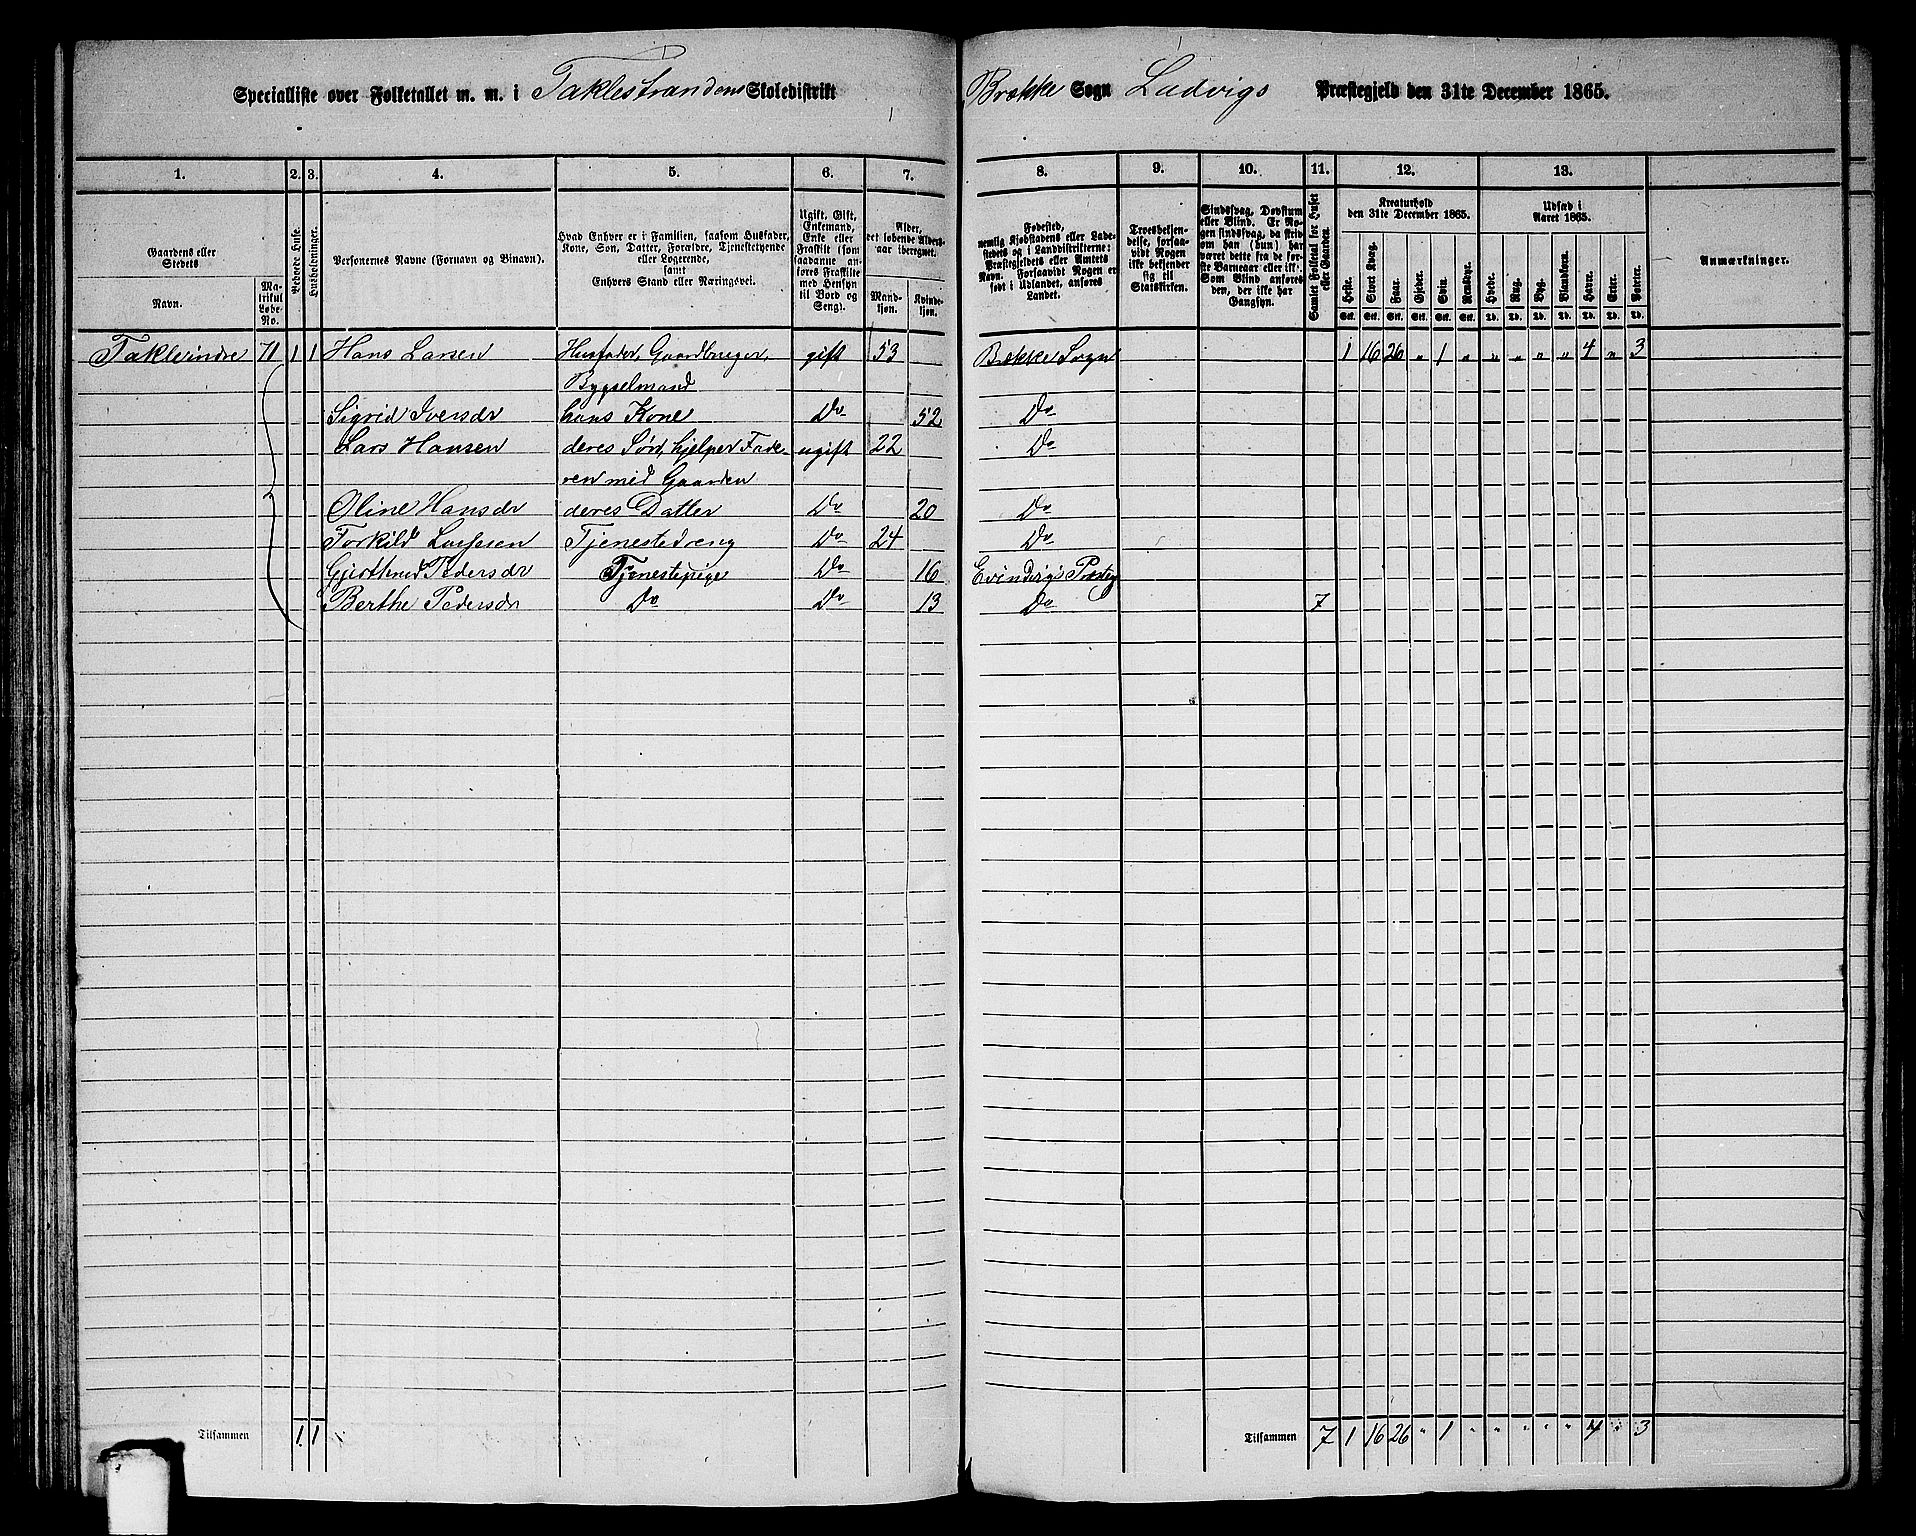 Specialliste over Folketallet m. m. i Taklestrandens Skoledistrikt Brække Sogn Ladvigs Præstegjeld den 31te December 1865.
1. 2. 3. 4. 5. 6. 7. 8. 9. 10. 11. 12. 13.
Gaardens eller Stedets
Navn.
Matrikul Løbe-No.
Beboede Huse.
Husholdninger.
Personernes Navne (Fornavn og Binavn).
Hvad Enhver er i Familien, saasom Husfader,
Kone, Son, Datter, Forældre, Tjenestetyende
eller Logerende,
samt
Enhvers Stand eller Næringsvei.
Ugift, Gift,
Enkemand,
Enke eller
Fraskilt (som
saadanne anføres Fraskilte
med Hensyn
til Bord og
Seng).
Alder,
det løbende Alders-
aar iberegnet.
Mandkjøn.
Kvindekjøn.
Fødested,
nemlig Kjøbstadens eller Lade-
stedets og i Landdistrikterne:
Præstegjeldets eller Amtets
Navn. Forsaavidt Nogen er
født i Udlandet, anføres
Landet.
Troesbekjen-
delse, forsaa-
vidt Nogen
ikke bekjender
sig til
Statskirken.
Sindssvag, Døvstum
eller Blind. Er No-
gen sindssvag, da skriv
om han (hun) har
været dette fra de før-
ste Barneaar eller ikke.
Som Blind anføres
den, der ikke har
Gangsyn.
Samlet Folketal for Huset
eller Gaarden.
Kreaturhold
den 31te December 1865.
Heste. Stort Kvæg. Faar. Gjeder. Svin. Rensdyr.
Udsæd i
Aaret 1865.
Hvede. Rug. Byg. Blandkorn. Havre. Erter. Poteter.
Stk. Stk. Stk. Stk. Stk. Stk. Td. Td. Td. Td. Td. Td. Td.
Anmærkninger.
Takle indre 71 1 1 Hans Larsen Husfader, Gaardbruger, gift 53 Brække Sogn 1 16 26 " 1 " " " " " 4 " 3
Bygselmand
Sigrid Iversdr hans Kone Do 52 Do
Lars Hansen deres Søn, hjelper Fade- ugift 22 Do
ren med Gaarden
Oline Hansdr deres Datter Do 20 Do
Torkild Larssen Tjenestedreng Do 24 Do
Gjerthrud Pedersdr Tjenestepige Do 16 Evindvigs Præstg
Berthe Pedersdr Do Do 13 Do 7
Tilsammen 1 1 Tilsammen 7 1 16 26 " 1 " " " " " 4 " 3